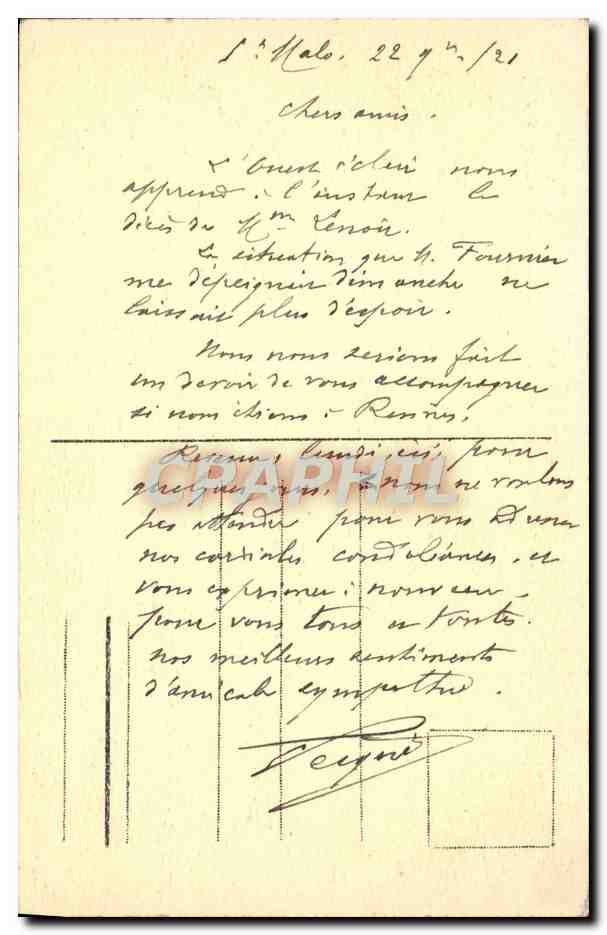 St Malo. 22 /21
Chers amis.
L'Ouest éclair nous
apprend à l'instant le
décès de Mme Lenoir.
La situation que M. Fournier
me dépeignait dimanche ne
laissait plus d'espoir.
Nous nous serions fait
un devoir de vous accompagner
si nous étions à Rennes.
lundi, ici, pour
quelques jours, nous ne voulons
pas attendre pour vous adresser
nos cordiales condoléances, et
vous exprimer à nouveau,
pour vous tous et toutes.
nos meilleurs sentiments
d'amicale sympathie.
CRAPHIL